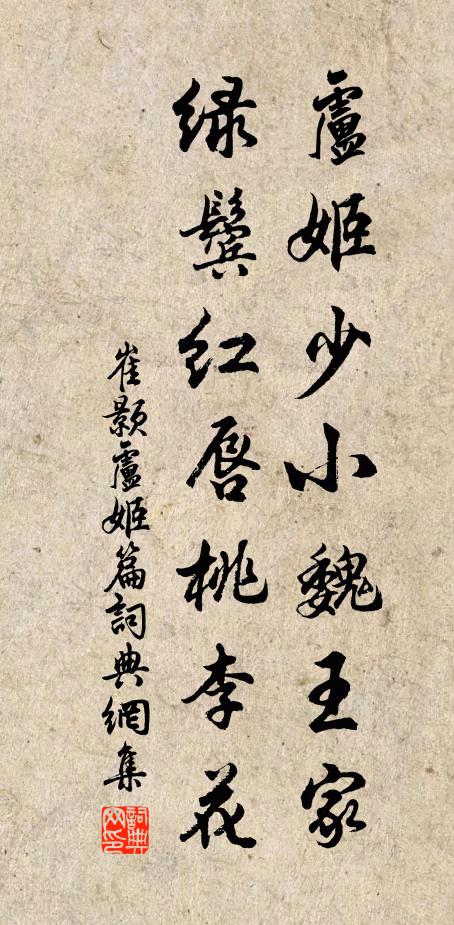 盧姬少小魏王家
绿鬓红唇桃李花
崔颢盧姬篇詞典網集
詞典网印